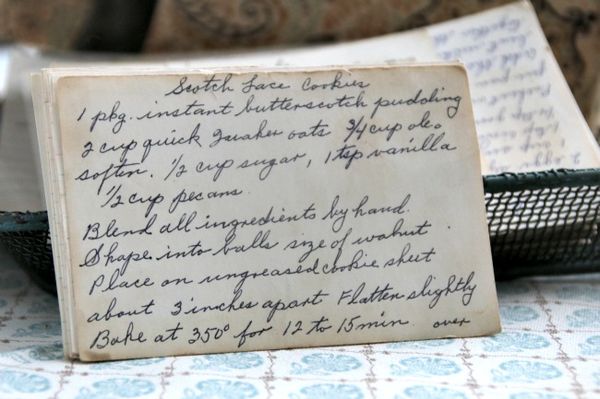 Scotch Lace Cookies
1 pkg. instant butterscotch pudding
2 cup quick Quaker oats 3/4 cup oleo
soften. 1/2 cup sugar, 1 tsp vanilla
1/2 cup pecans.
Blend all ingredients by hand.
Shape into balls size of walnut.
Place on ungreased cookie sheet
about 3 inches apart Flatten slightly
Bake at 350° for 12 to 15 min. over